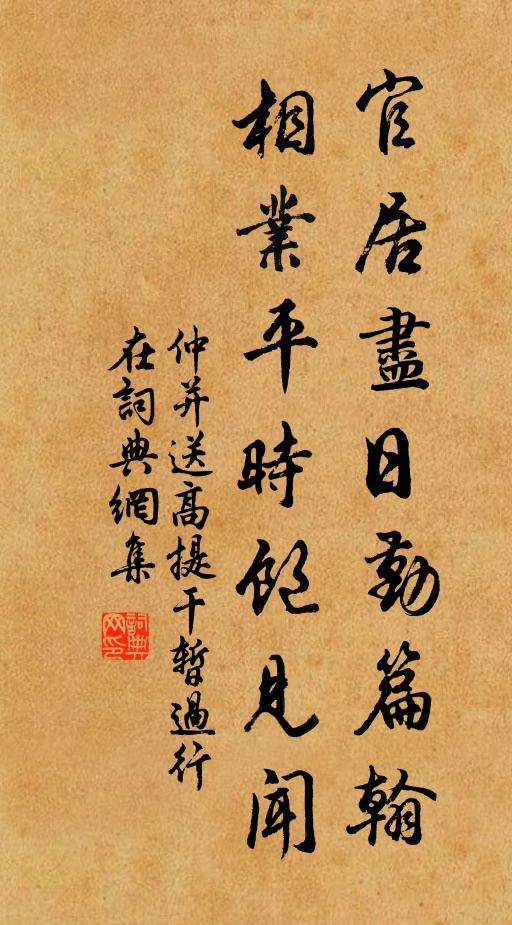 官居盡日勤篇翰
相業平時飽見聞
仲并送高提干暫過行
在詞典網集
詞典网印